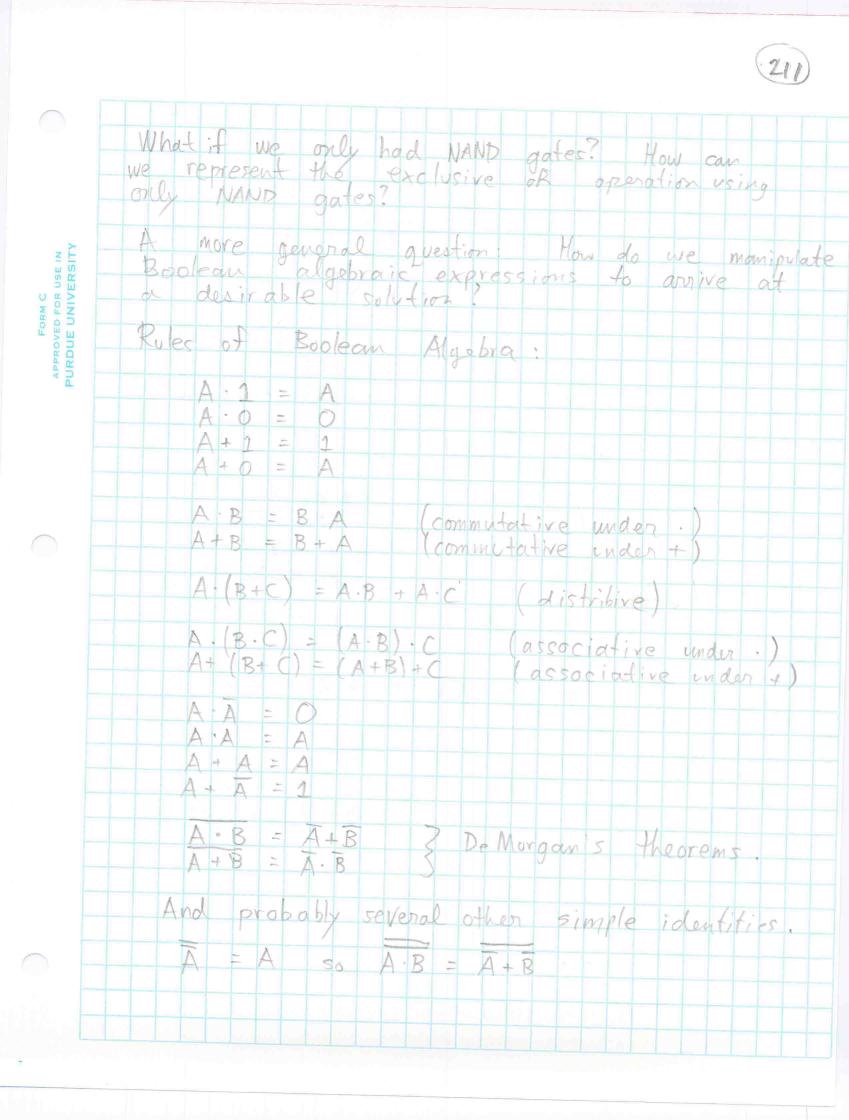 211
What if we only had NAND gates? How can
we represent the exclusive OR operation using
only NAND gates?
A more general question: How do we manipulate
Boolean algebraic expressions to arrive at
a desirable solution?
FORM C
APPROVED FOR USE IN
PURDUE UNIVERSITY
Rules of Boolean Algebra:
A · 1 = A
A · 0 = 0
A + 1 = 1
A + 0 = A
A · B = B · A (commutative under ·)
A + B = B + A (commutative under +)
A · (B + C) = A · B + A · C (distribive)
A · (B · C) = (A · B) · C (associative under ·)
A + (B + C) = (A + B) + C (associative under +)
A · A̅ = 0
A · A = A
A + A = A
A + A̅ = 1
A̅ ̅·̅ ̅B̅ = A̅ + B̅ } De Morgan's theorems.
A̅ ̅+̅ ̅B̅ = A̅ · B̅
And probably several other simple identities.
A̿ = A so A̿ ̿·̿ ̿B̿ = A̿ ̅+̅ ̅B̿